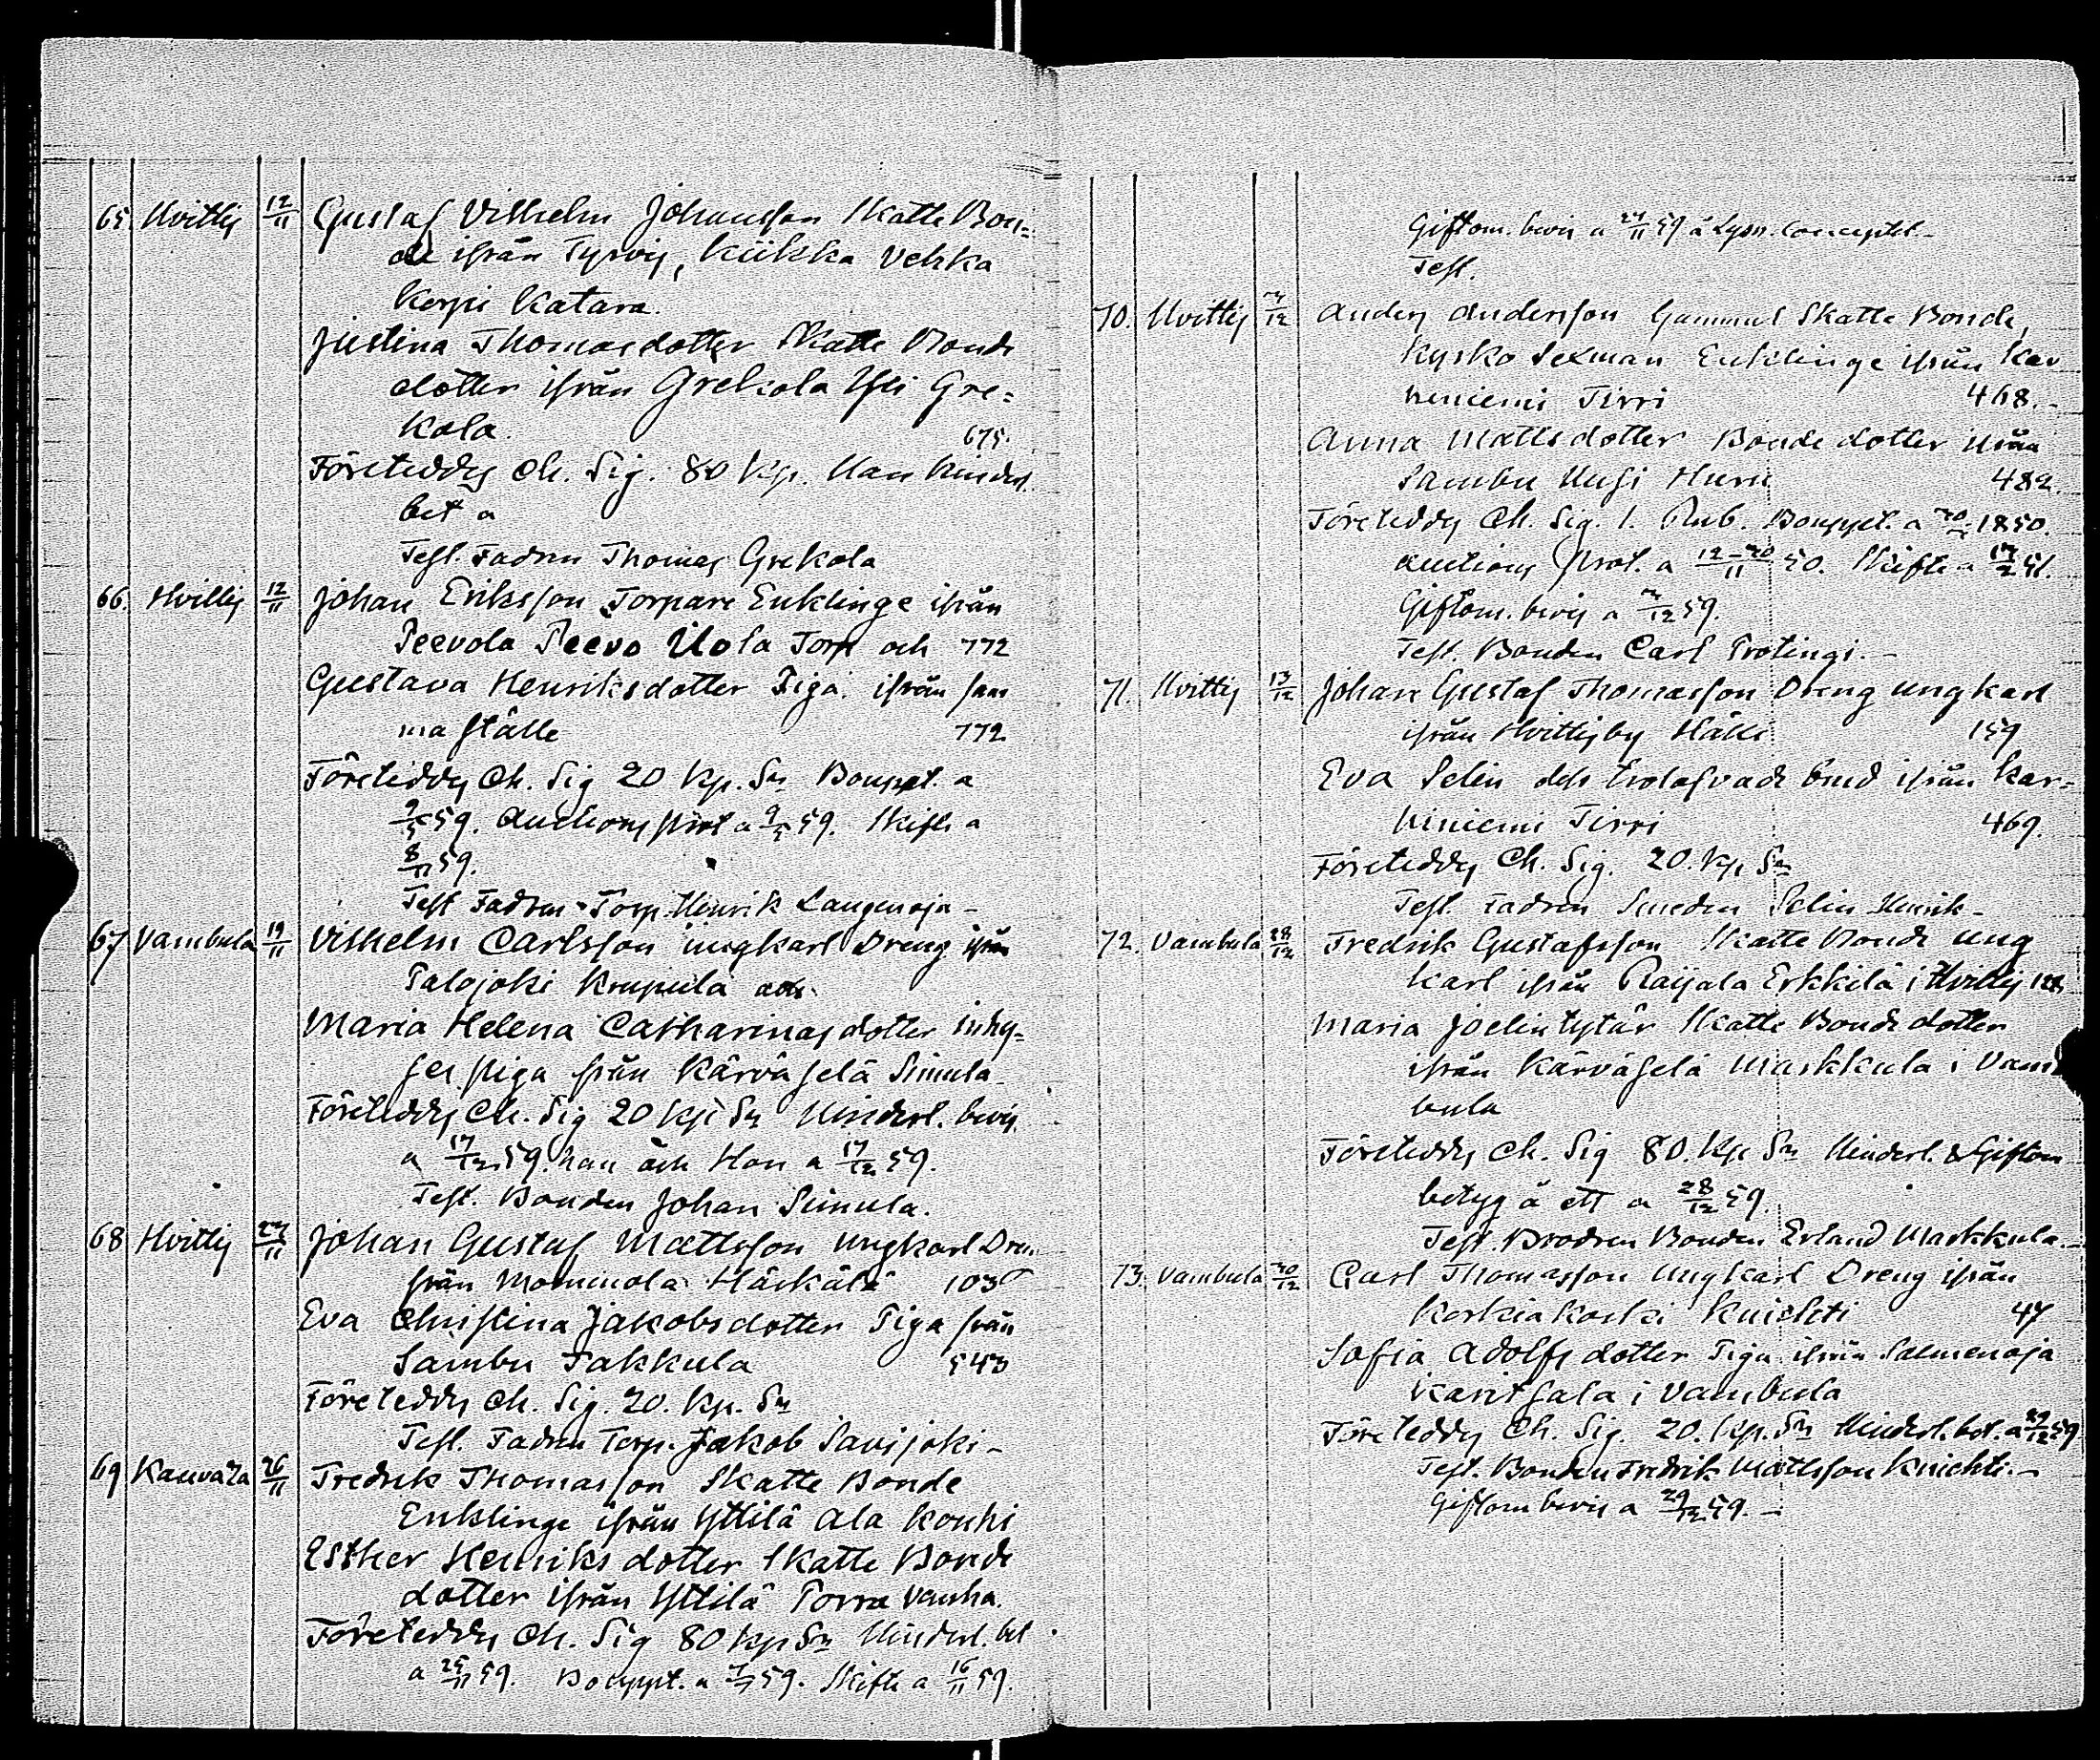 65. Hvittis 12/11 Gustaf Vilhelm Johansson Skatte Bon=
de ifrån Tyrvis, Kiikka Vehka
Korpi Katara.
Justina Thomasdotter Skatte Bonde
dotter ifrån Grekola Yli Gre=
kola. 675.
Företeddes Ch. Sig. 80 Kp. Han hinderl.
bet a
Test. Fadren Thomas Grekola
66. Hvittis 12/11 Johan Eriksson Torpare Enklinge ifrån
Peevola Peevo Uola Torp och 772
Gustava Henriksdotter Piga ifrån sam
ma ställe 772
Företeddes Ch. Sig 20 Kp. Sr Bouppt. a
9/5 59. Auctions prot a 9/5 59. Skifte a
8/11 59.
Test Fadren Torp. Henrik Laugenoja -
67 Vambula 19/11 Vilhelm Carlsson ungkarl Dreng ifrån
Palojoki Krupula och
Maria Helena Catharinasdotter inhy=
ses piga från Kärväselä Simula
Företeddes Ch. Sig 20 Kp Sr Hinderl. bevis
a 17/12 59. han och Hon a 17/12 59.
Test. Bonden Johan Simula.
68 Hvittis 24/11 Johan Gustaf Mattsson ungkarl Dren
från Mommola Härkälä 103
Eva Christina Jakobsdotter Piga från
Sambu Takkula 543
Företeddes Ch. Sig. 20. Kp. Sr
Test. Fadren Torp. Jakob Savijoki -
69 Kauvaza 26/11 Fredrik Thomasson Skatte Bonde
Enklinge ifrån Yttilä Ala Kouhi
Esther Henriks dotter Skatte Bonde
dotter ifrån Yttilä Porra Vanha.
Företeddes Ch. Sig 80 Kp Sr Hinderl. bet
a 25/11 59. Bouppt. a 59. Skifte a 16/11 59.
Giftom. bevis a 24/11 59 å Lysn. Conceptet -
Test.
70. Hvittis /12 Anders Andersson Gammal Skatte Bonde,
Kyrko Sexman Enklinge ifrån Kar
hiniemi Tirri 468.-
Anna Mattsdotter Bonde dotter ifrån
Sambu Uusi Hurri 482.
Företeddes Ch. Sig. 1. Rub. Bouppt. a 1850.
Auctions Prot. a 12-20/11 50. Skifte a 17/2 51.
Giftom. bevis a /12 59.
Test. Bonden Carl Protingi. -
71. Hvittis 13/12 Johan Gustaf Thomasson Dreng ungkarl
ifrån Hvittisby Hälli 159
Eva Selin ifrån Kar=
hiniemi Tirri 469.
Företeddes Ch. Sig. 20. Kp Sr
Test. Fadren Smeden Selin Henrik -
72. Vambula 28/12 Fredrik Gustafsson Skatte Bonde ung
karl ifrån Raijala Erkkilä i Hvittis
Maria Joelintytär Skatte Bonde dotter
ifrån Kärväselä Markkula i Vam
bula
Företeddes Ch. Sig 80. Kp Sr Hinderl. & Giftom
betyg å ett a 28/12 59.
Test. Brodren Bonden Erland Markkula. -
73. Vambula 30/12 Carl Thomasson Ungkarl Dreng ifrån
Korkiakoski Knichti 47
Sofia Adolfs dotter Piga ifrån Salmenoja
Karitsala i Vambula
Företeddes Ch. Sig. 20. Kp. Sr Hinderl. bet. a 29/12 59
Test. Bonden Fredrik Mattsson Knichti. -
Giftom bevis a 29/12 59. -